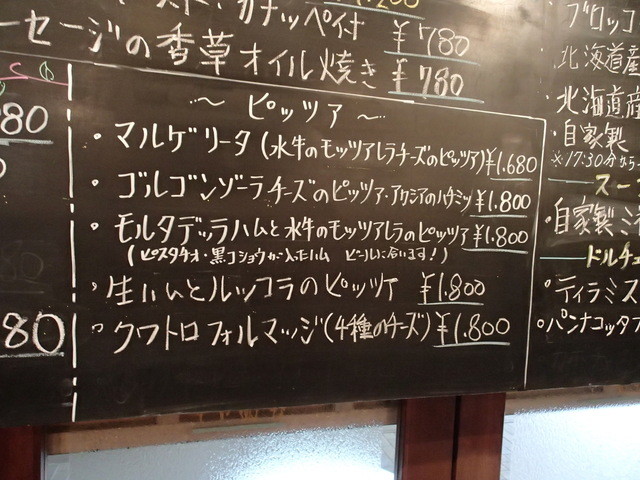 カナッペ付 ¥780
ーセージの香草オイル焼き ¥780
80
～ ピッツァ ～
・マルゲリータ(水牛のモッツアレラチーズのピッツァ)¥1.680
・ゴルゴンゾーラチーズのピッツァ・アカシアのハチミツ ¥1.800
・モルタデッラハムと水牛のモッツアレラのピッツァ ¥1.800
(ピスタチオ・黒コショウが入ったハム ビールに合います!)
・生ハムとルッコラのピッツァ ¥1.800
・クワトロフォルマッジ(4種のチーズ) ¥1.800
80
ブロッコ
北海道産
・北海道産
・自家製
※17:30分なら
スー
・自家製ミ
ドルチェ
・ティラミス
・パンナコッタ